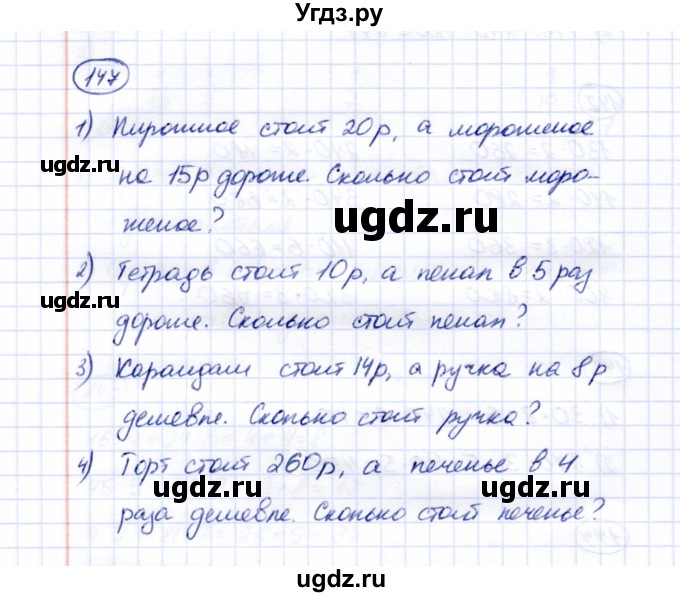 Угдз.ру
147
1) Пирожное стоит 20р, а мороженое
на 15р дороже. Сколько стоит моро-
ugdz.ru
ugdz.ru
женое?
ugdz.ru
2) Тетрадь стоит 10р, а пенал в 5 раз
ugdz.ru
ugdz.ru
дороже. Сколько стоит пенал?
3) Карандаш стоит 14р, а ручка на 8р
дешевле. Сколько стоит ручка?
4) Торт стоит 260р, а печенье в 4
ugdz.ru
ugdz.ru
раза дешевле. Сколько стоит печенье?
ugdz.ru